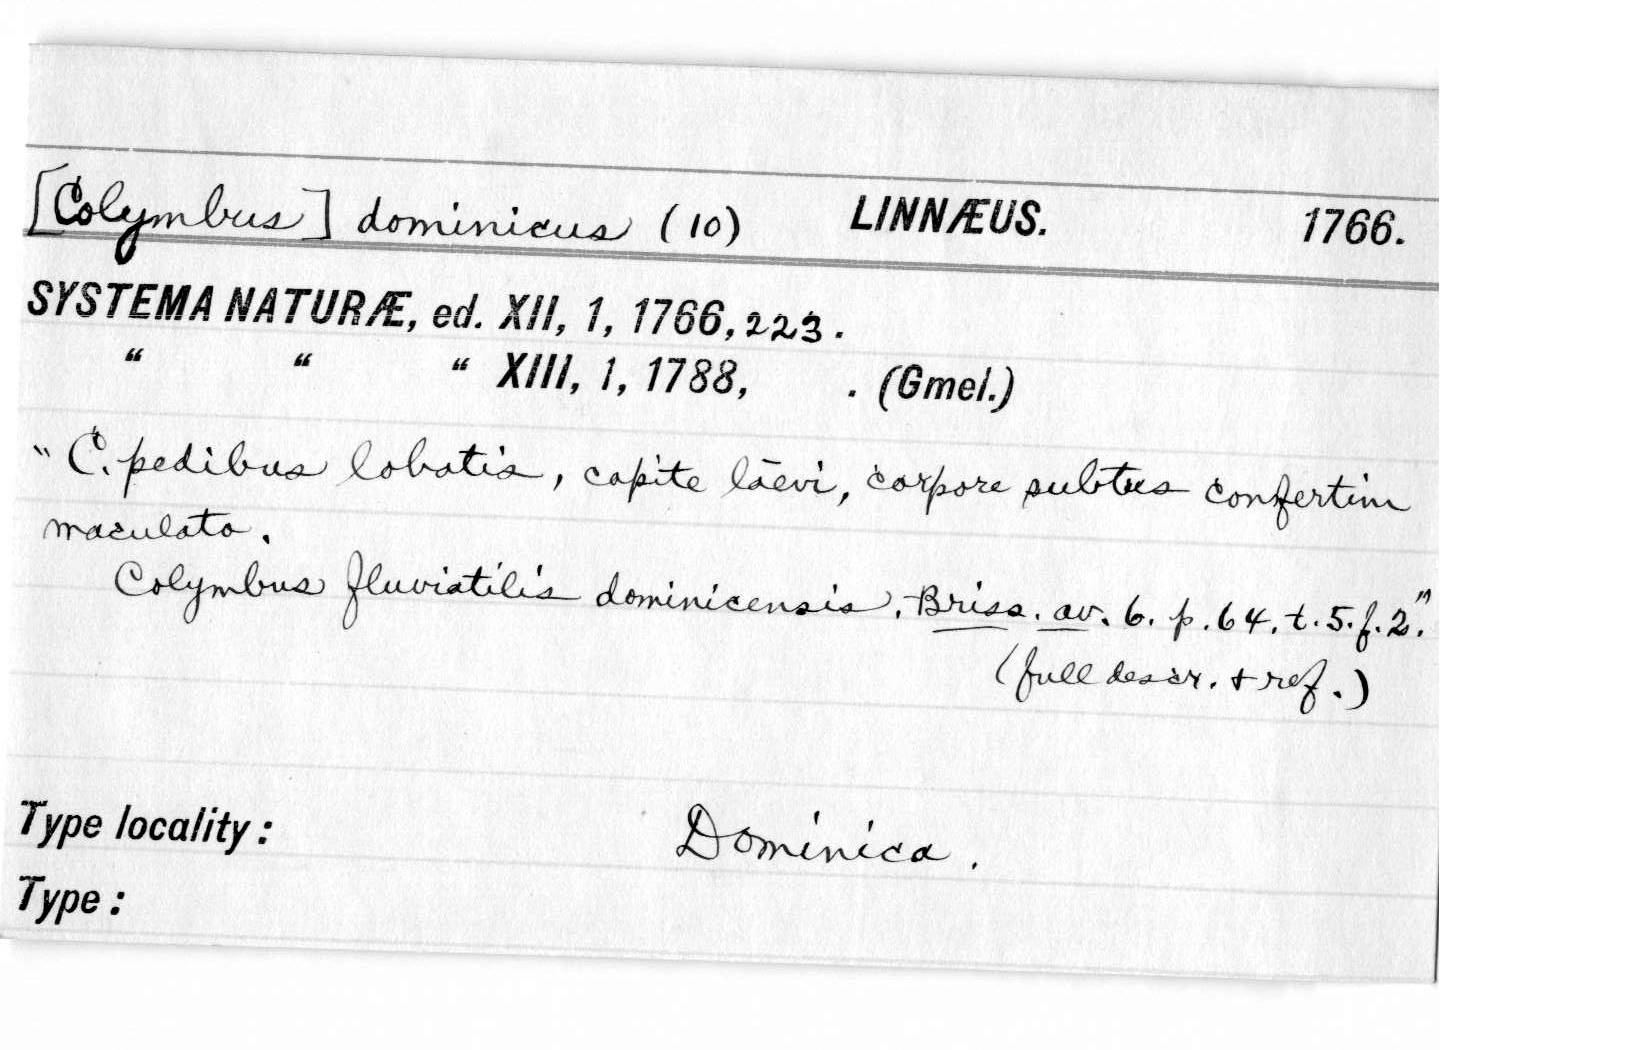 [Colymbus] dominicus (10) LINNÆUS. 1766.
SYSTEMA NATURÆ, ed. XII, 1, 1766, 223.
“ “ “ XIII, 1, 1788, . (Gmel.)
"C. pedibus lobatis, capite lāevi, corpore subtus confertim
maculato.
Colymbus fluviatilis dominicensis. Briss. av. 6. p. 64. t. 5. f. 2."
(full descr. + ref.)
Type locality: Dominica.
Type: